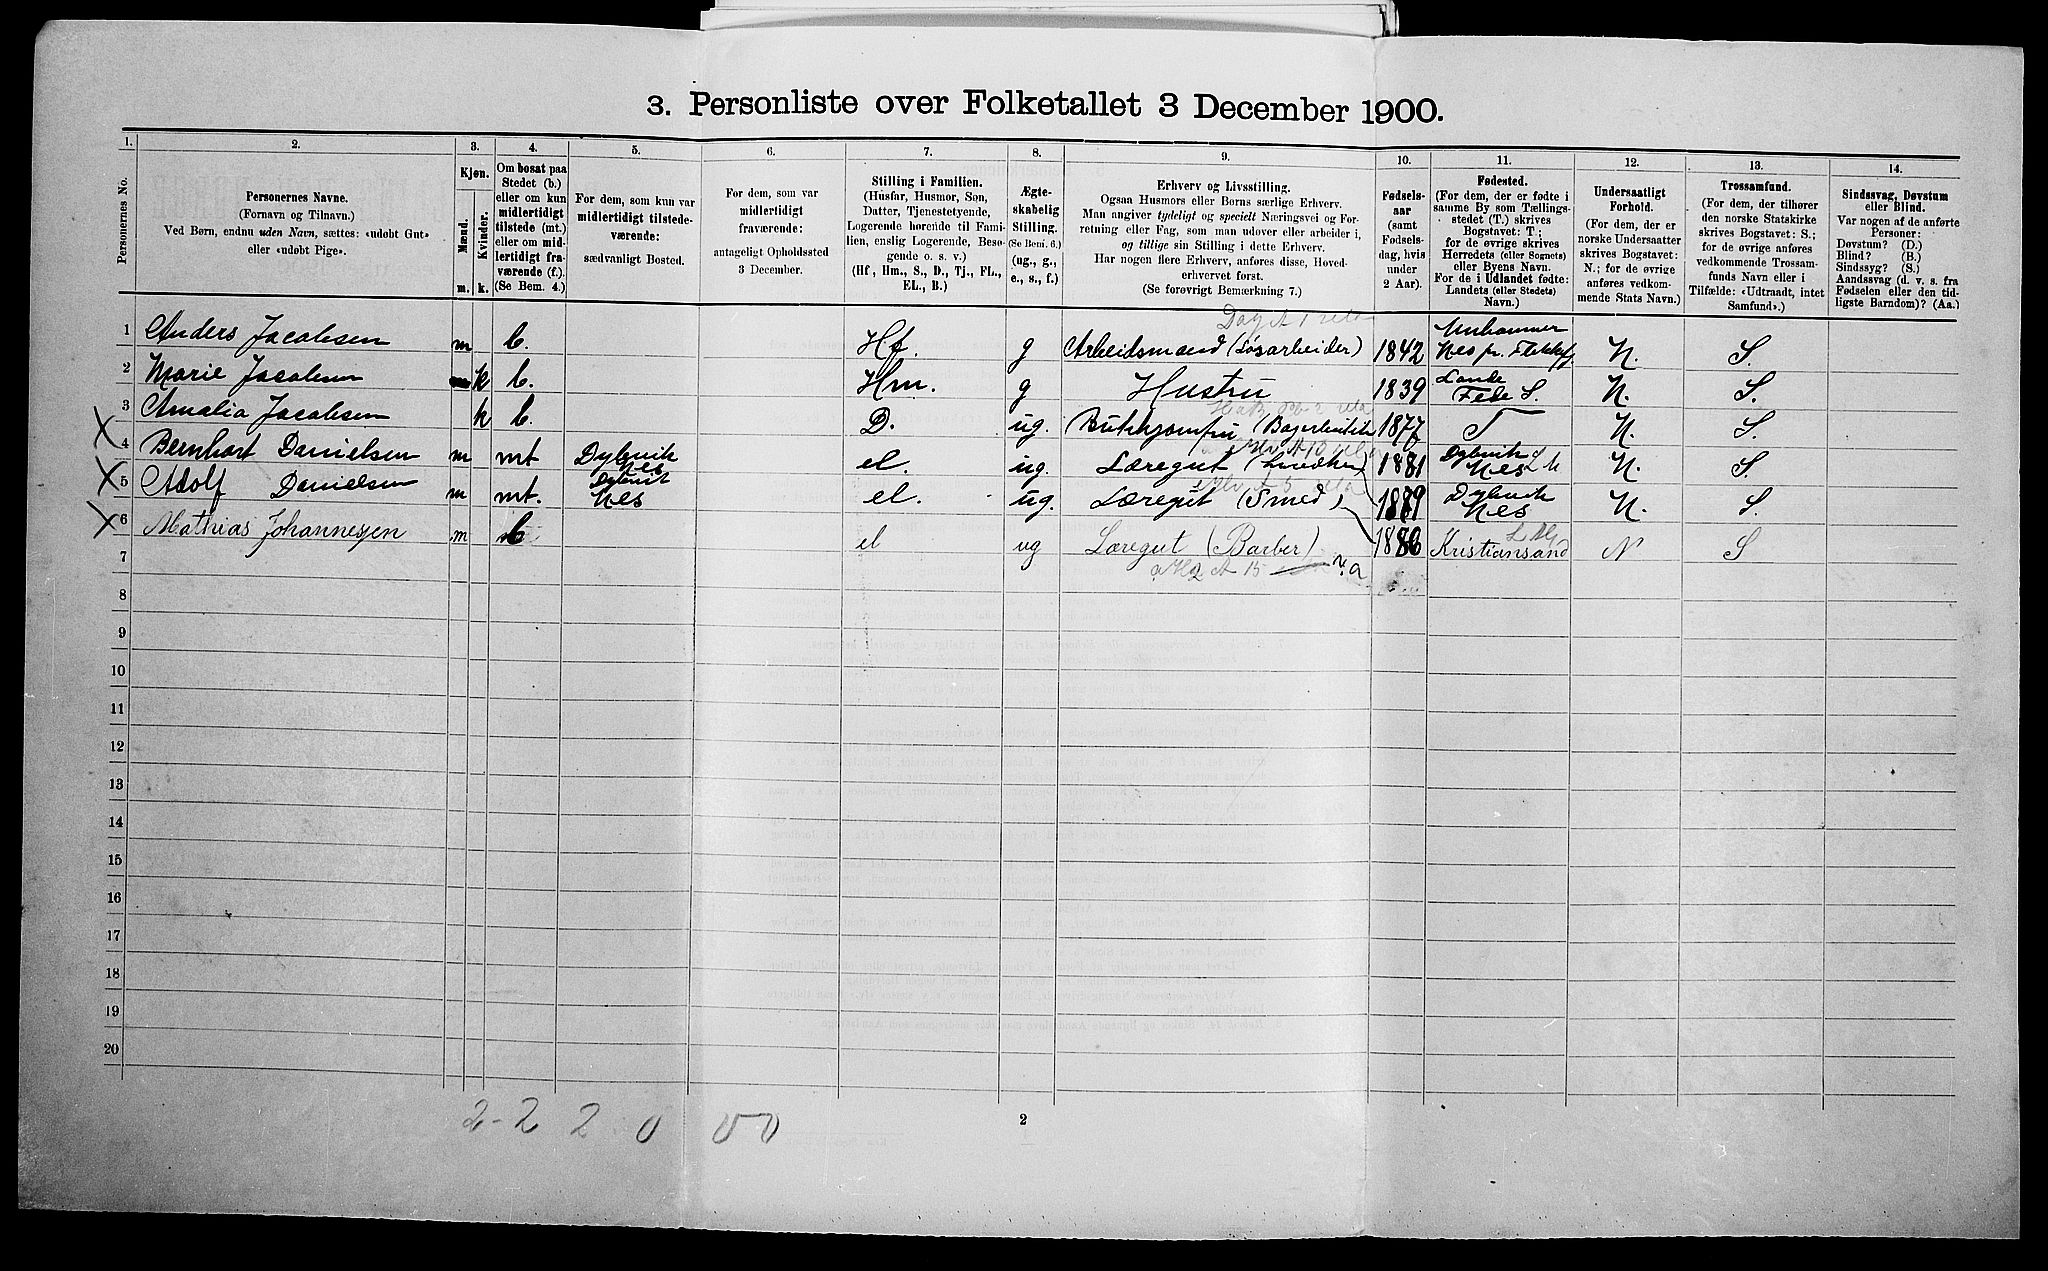 3. Personliste over Folketallet 3 December 1900.
1. 2. 3. 4. 5. 6. 7. 8. 9. 10. 11. 12. 13. 14.
Personernes No.
Personernes Navne.
(Fornavn og Tilnavn.)
Ved Børn, endnu uden Navn, sættes: «udøbt Gut»
eller «udøbt Pige».
Kjøn.
Mænd.
Kvinder.
m. k.
Om bosat paa
Stedet (b.)
eller om kun
midlertidigt
tilstede (mt.)
eller om mid-
lertidigt fra-
værende (f.).
(Se Bem. 4.)
For dem, som var
midlertidigt tilstede-
værende:
sædvanligt Bosted.
For dem, som var
midlertidigt
fraværende:
antageligt Opholdssted
3 December.
Stilling i Familien.
(Husfar, Husmor, Søn,
Datter, Tjenestetyende,
Logerende hørende til Fami-
lien, enslig Logerende, Besø-
gende o. s. v.)
(Hf, Hm., S., D., Tj., FL.,
EL., B.)
Ægte-
skabelig
Stilling.
(Se Bem. 6.)
(ug., g.,
e., s., f.)
Erhverv og Livsstilling.
Ogsaa Husmors eller Børns særlige Erhverv.
Man angiver tydeligt og specielt Næringsvei og For-
retning eller Fag, som man udover eller arbeider i,
og tillige sin Stilling i dette Erhverv.
Har nogen flere Erhverv, anføres disse, Hoved-
erhvervet først.
(Se forøvrigt Bemærkning 7.)
Fødsels-
aar
(samt
Fødsels-
dag, hvis
under
2 Aar).
Fødested.
(For dem, der er fødte i
samme By som Tællings-
stedet (T.) skrives
Bogstavet: T.;
for de øvrige skrives
Herredets (eller Sognets)
eller Byens Navn.
For de i Udlandet fødte:
Landets (eller Stedets)
Navn.)
Undersaatligt
Forhold.
(For dem, der er
norske Undersaatter
skrives Bogstavet:
N.; for de øvrige
anføres vedkom-
mende Stats Navn.)
Trossamfund.
(For dem, der tilhører
den norske Statskirke
skrives Bogstavet: S.;
for de øvrige anføres
vedkommende Trossam-
funds Navn eller i
Tilfælde: «Udtraadt, intet
Samfund».)
Sindssvag, Døvstum
eller Blind.
Var nogen af de anførte
Personer:
Døvstum? (D.)
Blind? (B.)
Sindssyg? (S.)
Aandssvag (d. v. s. fra
Fødselen eller den tid-
ligste Barndom)? (Aa.)
1 Anders Jacobsen m b. Hf. g Arbeidsmand (Løsarbeider) 1842 Nes pr. Flekkefj. N. S.
2 Marie Jacobsen k b. Hm. g Hustru 1839 Lande Fede S. N. S.
3 Amalia Jacobsen k b. D. ug. 1877 T N. S.
4 Bernhart Danielsen m mt Dybvik Nes el. ug. Læregut 1881 Dybvik Nes N. S.
5 Adolf Danielsen m mt. Dybvik Nes el. ug. Læregut (Smed) 1879 Dybvik Nes N. S.
6 Mathias Johannesen m b el ug Læregut (Barber) 1886 Kristiansand N S
7
8
9
10
11
12
13
14
15
16
17
18
19
20
2-2 2 0 00
2